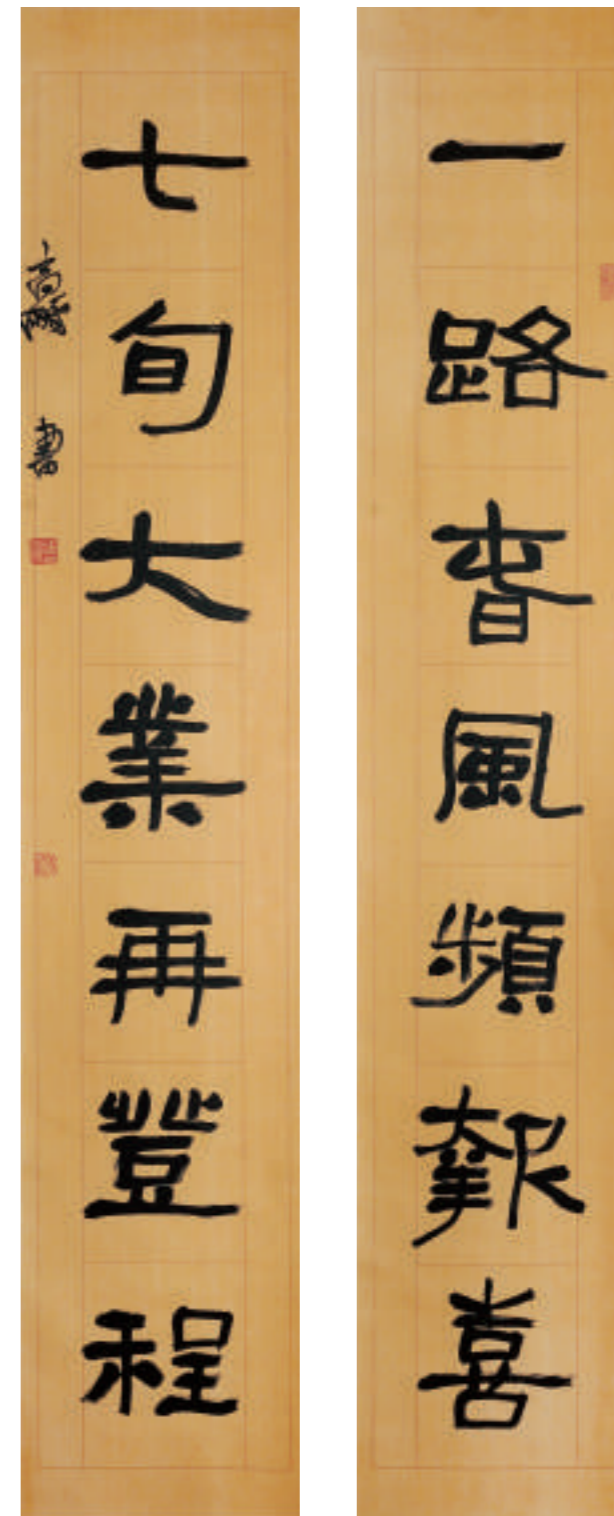 一路春風頻報喜
七旬大業再登程
書